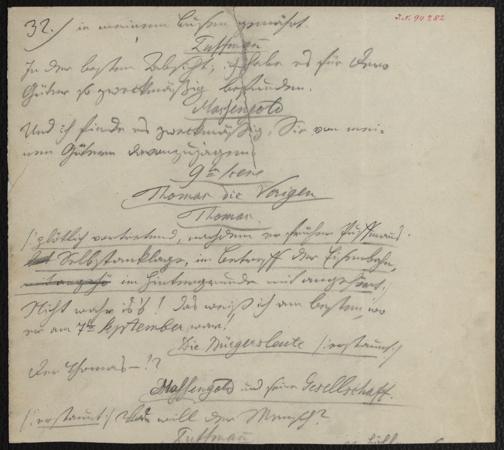 32.) in meinem Busen genährt.
I.N. 94282
Puffmann
In der besten Absicht; ich habe es für dero
Güter so zweckmäßig befunden.
Massengold
Und ich finde es zweckmäßig, Sie von mei-
nen Gütern davonzujagen.
9te Scene
Thomas die Vorigen
Thomas.
/: plötzlich vortretend, nachdem er früher Puffmanns
Selbstanklage, in betreff der Eisenbahn,
im Hintergrunde mit angehört,
Nicht wahr is's! Das weiß ich am besten, wo
er am 7ten September war.
Die Bürgersleute /: erstaunt :/
Der Thomas—!?
Massengold und seine Gesellschaft.
/: erstaunt :/ Was will der Mensch?
Puffmann